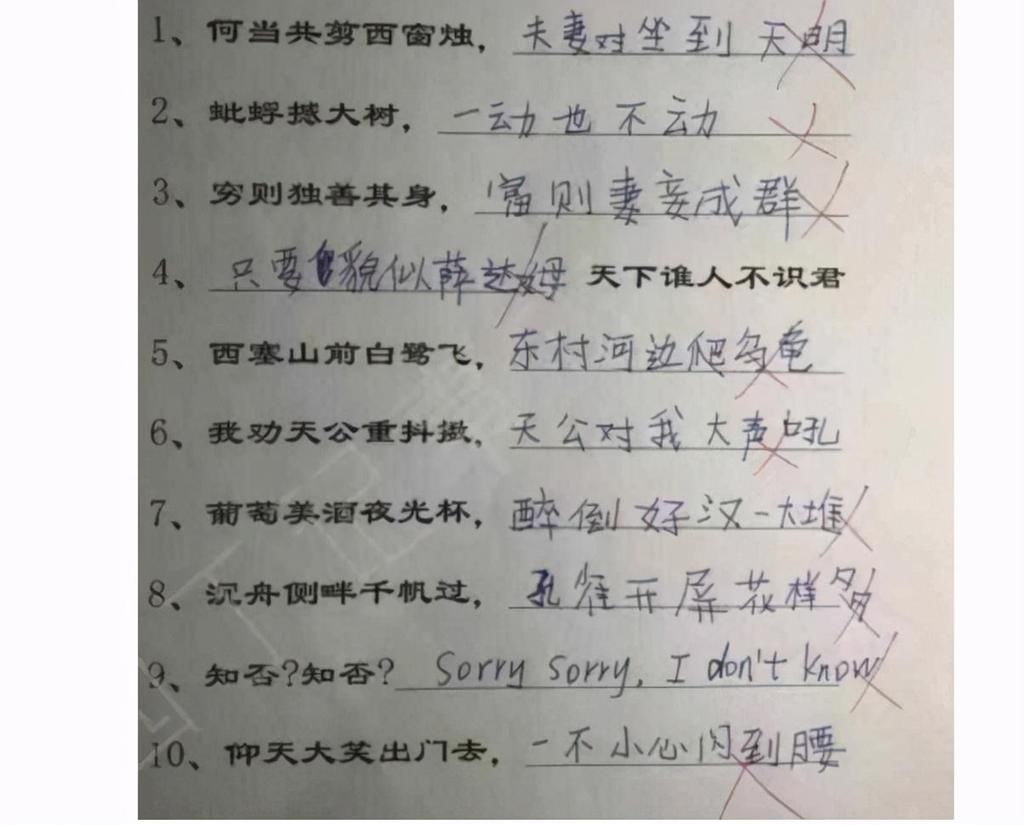 1、何当共剪西窗烛，夫妻对坐到天明
2、蚍蜉撼大树，一动也不动
3、穷则独善其身，富则妻妾成群
4、只要貌似薛达姆 天下谁人不识君
5、西塞山前白鹭飞，东村河边爬乌龟
6、我劝天公重抖擞，天公对我大声吼
7、葡萄美酒夜光杯，醉倒好汉一大堆
8、沉舟侧畔千帆过，孔雀开屏花样多
9、知否?知否? Sorry sorry, I don't know
10、仰天大笑出门去，一不小心闪到腰